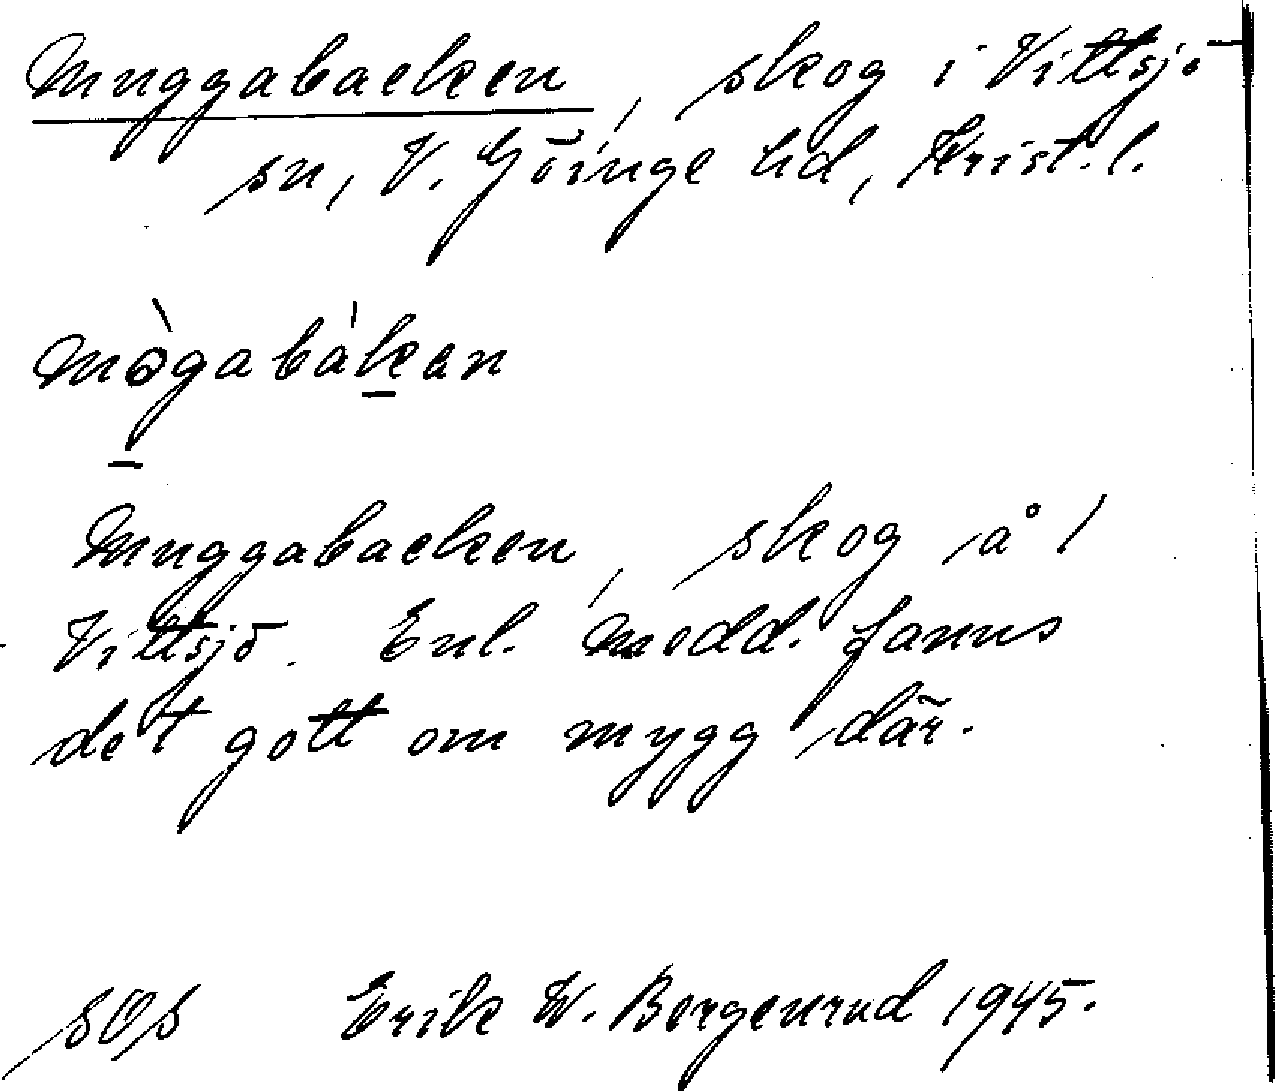 Muggabacken, skog i Vittsjö
sn, V. Göinge hd, Krist. l.
mògabàkan
Muggabacken, skog å 1
Vittsjö. Enl. medd. fanns
det gott om mygg där.
Erik W. Borgenrud 1945.